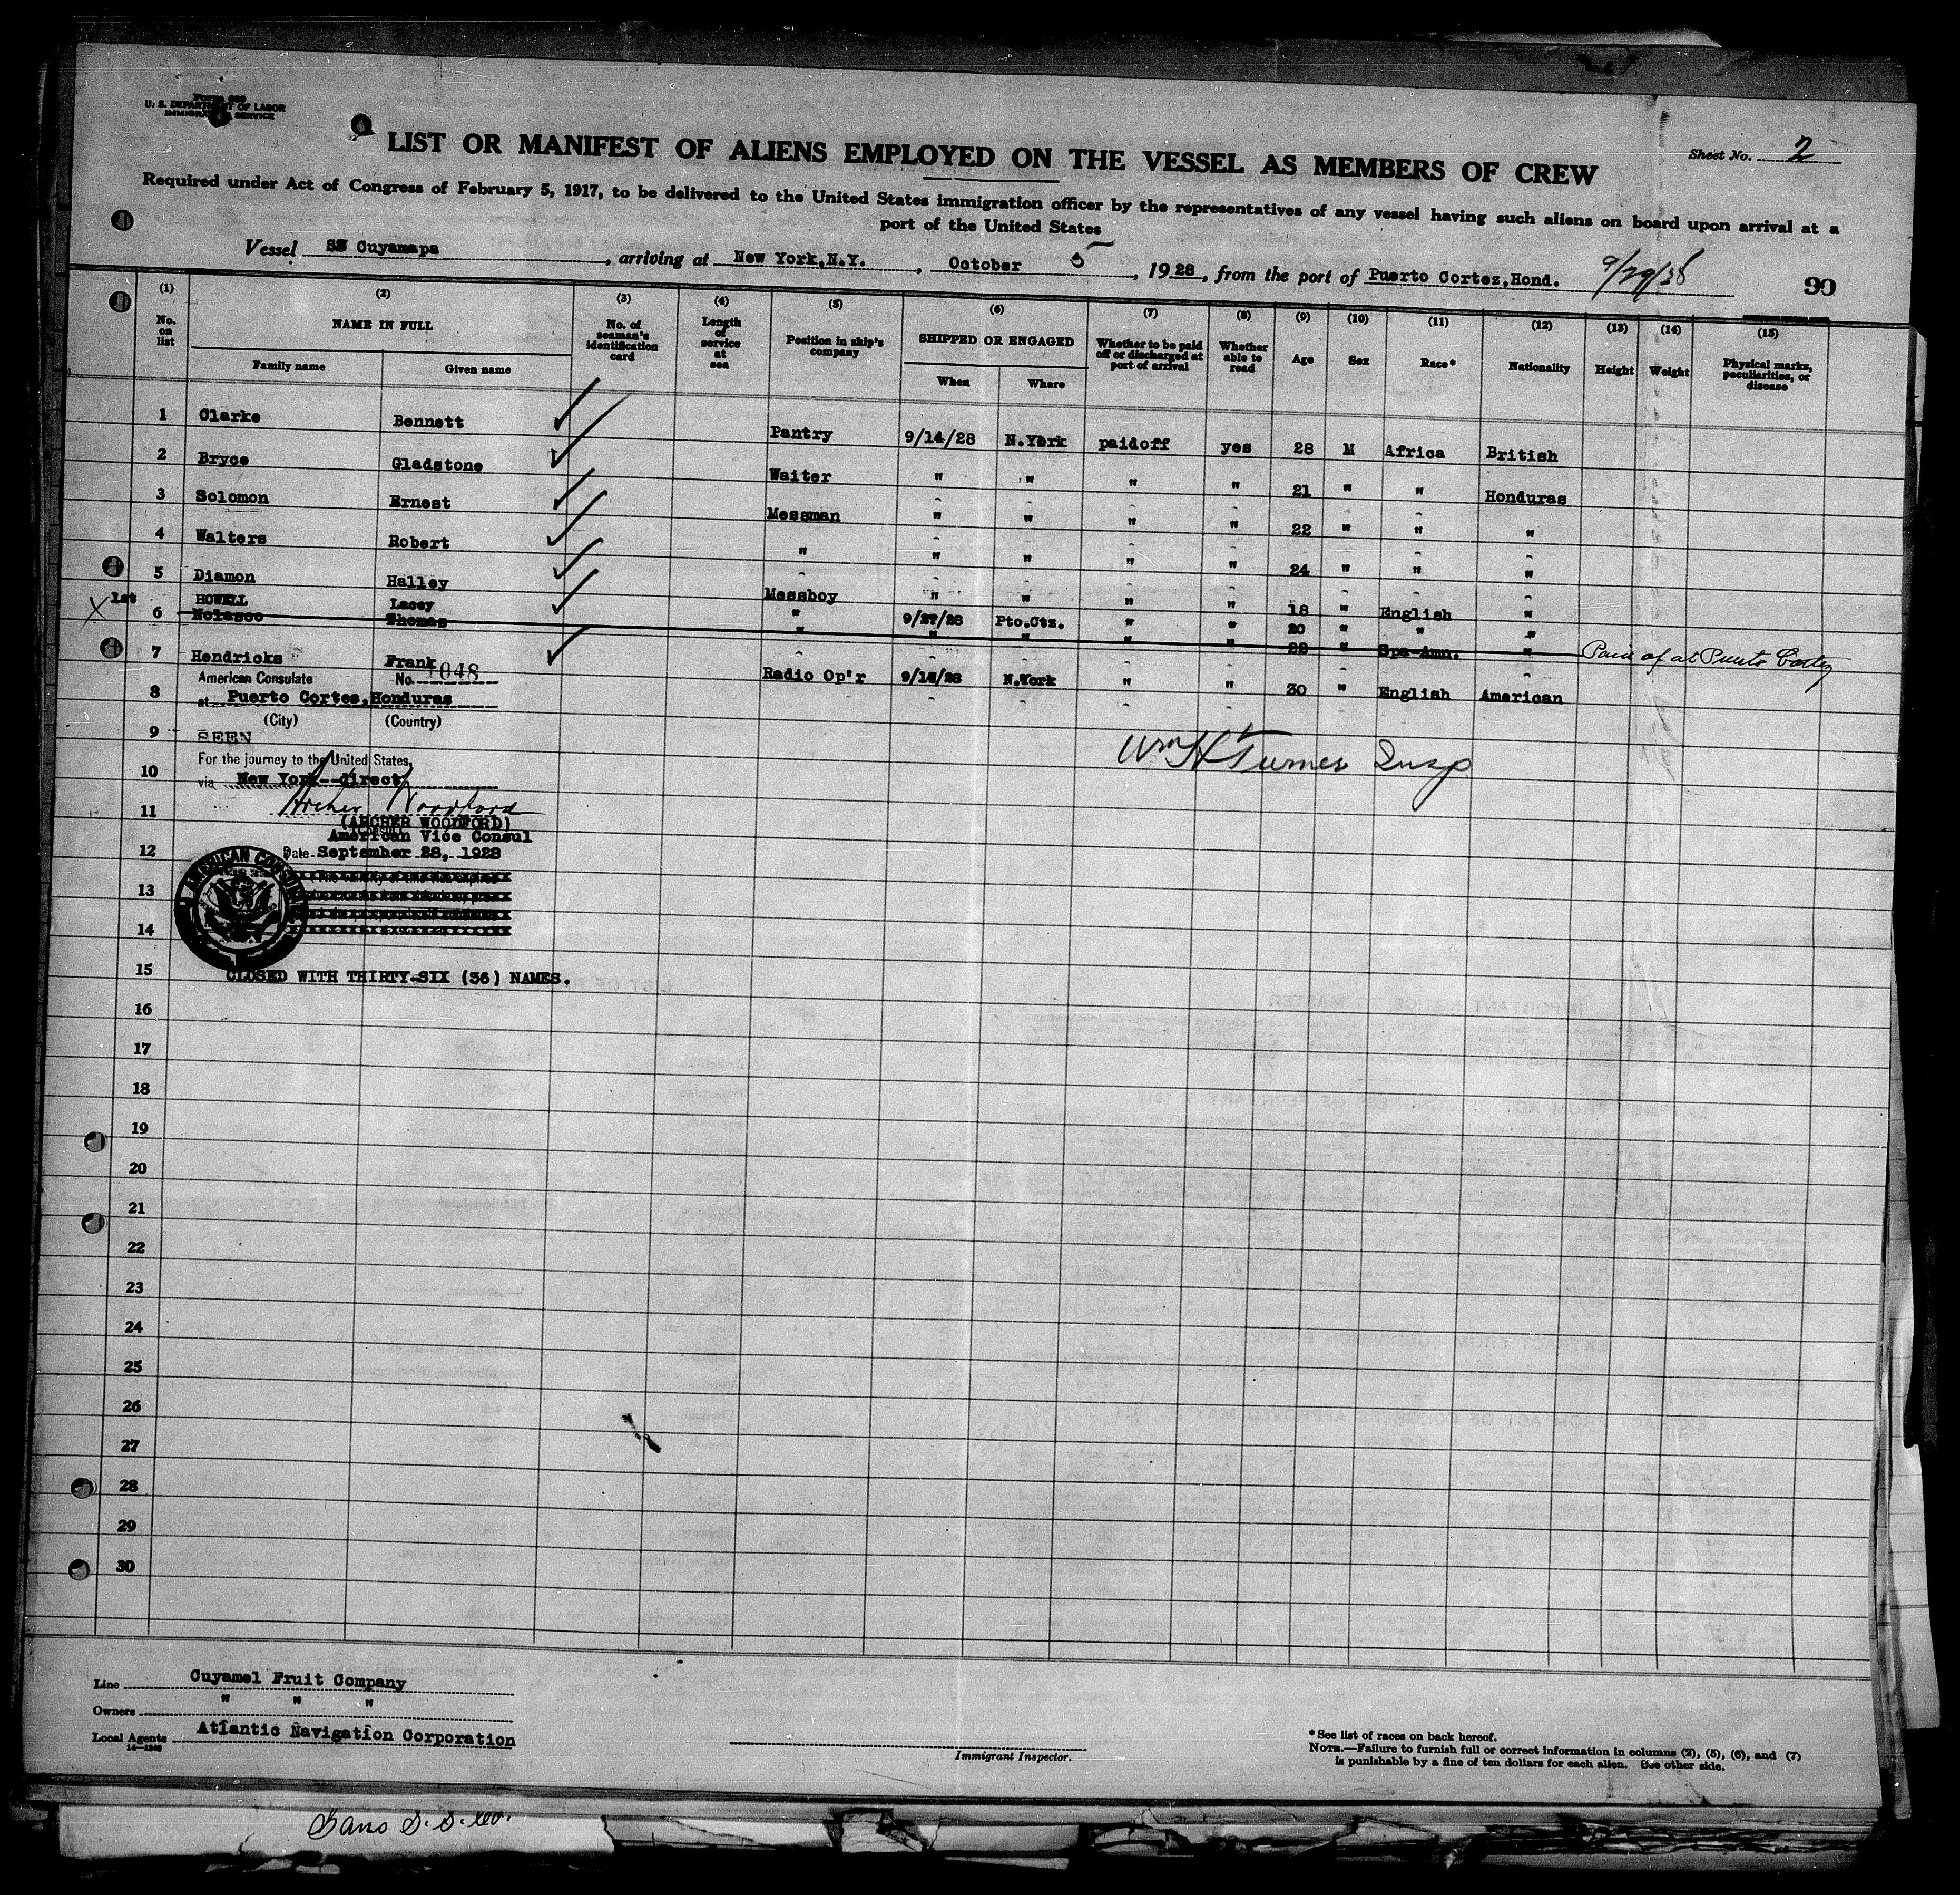 U. S. DEPARTMENT OF LABOR
IMMIGRATION SERVICE
LIST OR MANIFEST OF ALIENS EMPLOYED ON THE VESSEL AS MEMBERS OF CREW
Sheet No. 2
Required under Act of Congress of February 5, 1917, to be delivered to the United States immigration officer by the representatives of any vessel having such aliens on board upon arrival at a
port of the United States
Vessel SS Cuyamapa, arriving at New York, N.Y., October 5, 1928, from the port of Puerto Cortez, Hond. 9/29/28
90
(1) (2) (3) (4) (5) (6) (7) (8) (9) (10) (11) (12) (13) (14) (15)
No. on list NAME IN FULL No. of seaman's identification card Length of service at sea Position in ship's company SHIPPED OR ENGAGED Whether to be paid off or discharged at port of arrival Whether able to read Age Sex Race* Nationality Height Weight Physical marks, peculiarities, or disease
Family name Given name When Where
1 Clarke Bennett Pantry 9/14/28 N.York paidoff yes 28 M Africa British
2 Bryce Gladstone Waiter " " " " 21 " " Honduras
3 Solomon Ernest Messman " " " " 22 " " "
4 Walters Robert " " " " " 24 " " "
5 Diamon Halley Messboy " " " " 18 " English "
X 1st HOWELL Lacey " 9/27/28 Pto.Ctz. " " 20 " " "
6 Nolasco Thomas " " " " " 22 " Spa-Amn. " Paid of at Puerto Cortez
7 Hendricks Frank Radio Op'r 9/14/28 N.York " " 30 " English American
American Consulate No. 1048
8 at Puerto Cortes, Honduras
(City) (Country)
9 SEEN
For the journey to the United States,
10 via New York--direct
Archer Woodford
11 (ARCHER WOODFORD)
American Vice Consul
12 Date September 28, 1928
AMERICAN CONSUL
13
14
15 CLOSED WITH THIRTY-SIX (36) NAMES.
Wm H Turner Insp
16
17
18
19
20
21
22
23
24
25
26
27
28
29
30
Line Cuyamel Fruit Company
Owners " " "
Local Agents Atlantic Navigation Corporation
Immigrant Inspector.
*See list of races on back hereof.
NOTE.—Failure to furnish full or correct information in columns (2), (5), (6), and (7)
is punishable by a fine of ten dollars for each alien. See other side.